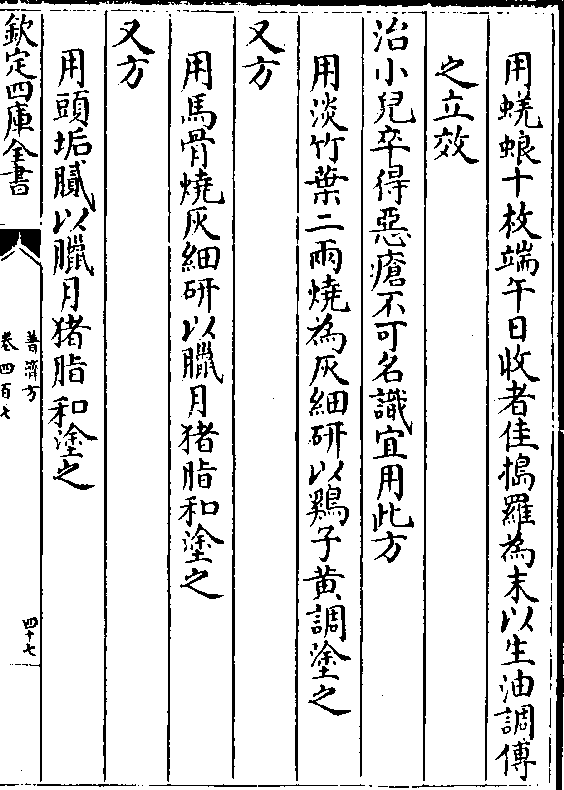 用蜣蜋十枚端午日收者佳搗羅為末以生油調傅
之立效
治小兒卒得惡瘡不可名識宜用此方
用淡竹葉二兩燒為灰細研以鷄子黃調塗之
又方
用馬骨燒灰細研以臘月猪脂和塗之
又方
用頭垢膩以臘月猪脂和塗之
欽定四庫全書
普濟方
卷四百七
四十七